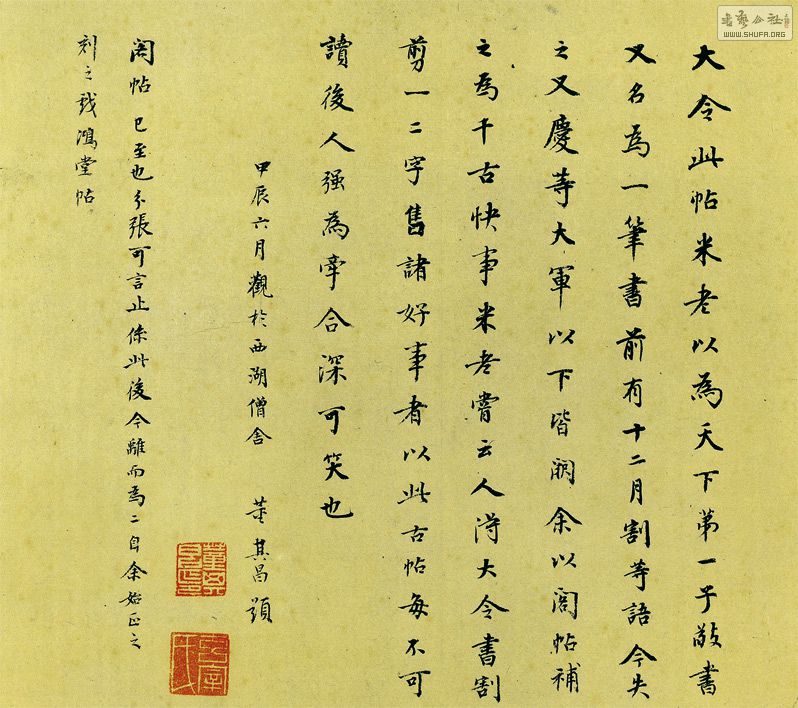 大令此帖米老以為天下第一子敬書
又名為一筆書前有十二月割等語今失
之又慶等大軍以下皆闕余以閣帖補
之為千古快事米老嘗云人得大令書割
剪一二字售諸好事者以此古帖每不可
讀後人强為牽合深可笑也
甲辰六月觀於西湖僧舍 董其昌題
閣帖已至也分張可言止係此後今離而為二自余始正之
刻之戲鴻堂帖
书艺公社
WWW.SHUFA.ORG